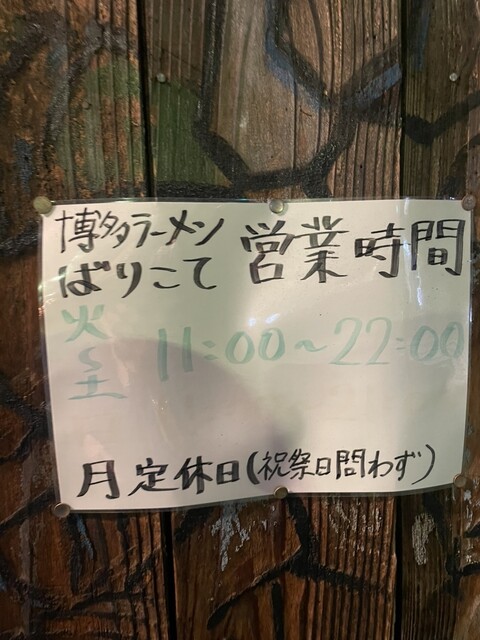 博多ラーメン
ばりこて 営業時間
火〜土 11:00〜22:00
月定休日(祝祭日問わず)